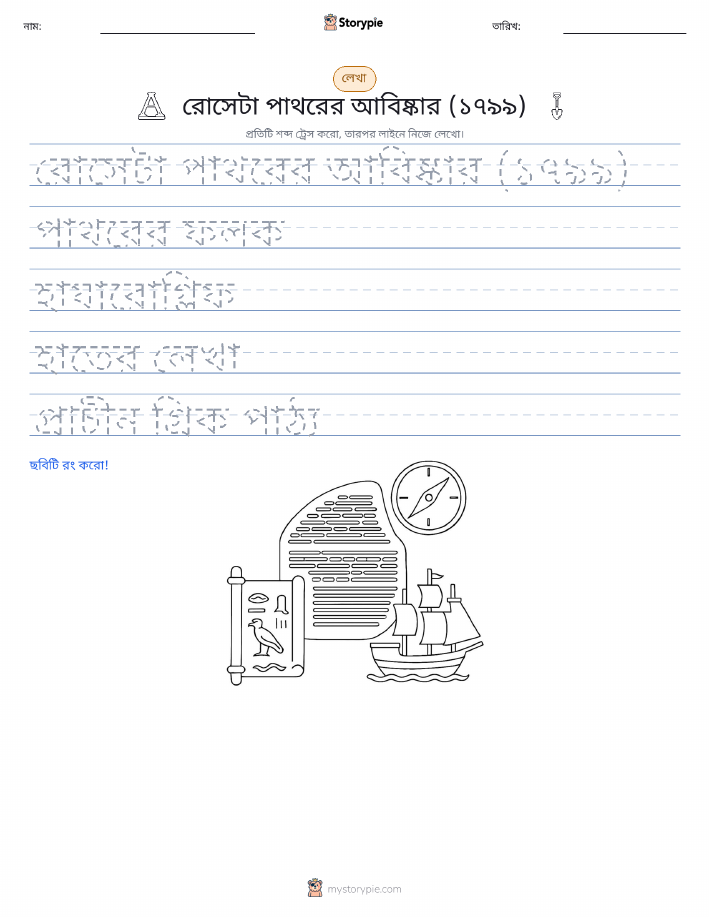 নাম:
Storypie
তারিখ:
লেখা
রোসেটা পাথরের আবিষ্কার (১৭৯৯)
প্রতিটি শব্দ ট্রেস করো, তারপর লাইনে নিজে লেখো।
রোসেটা পাথরের আবিষ্কার (১৭৯৯)
পাথরের ফলক
হায়ারোগ্লিফ
হাতের লেখা
প্রাচীন গ্রিক পাঠ্য
ছবিটি রং করো!
mystorypie.com